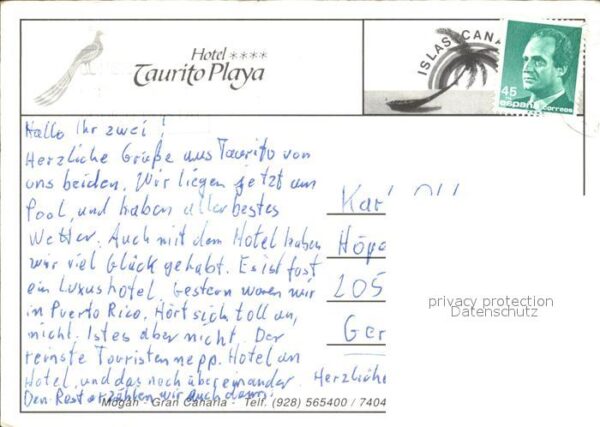 Hotel ****
Taurito Playa
ISLAS CANA
45
españa correos
Hallo Ihr zwei!
Herzliche Grüße aus Taurito von
uns beiden. Wir liegen jetzt am
Pool, und haben allerbestes
Wetter. Auch mit dem Hotel haben
wir viel Glück gehabt. Es ist fast
ein Luxushotel. Gestern waren wir
in Puerto Rico. Hört sich toll an,
nicht. Ist es aber nicht. Der
reinste Touristennepp. Hotel an
Hotel, und das noch übereinander. Herzliche
Den Rest erzählen wir auch dann.
Kar
Höpe
205
Ger
privacy protection
Datenschutz
Mogán - Gran Canaria - Telf. (928) 565400 / 7404